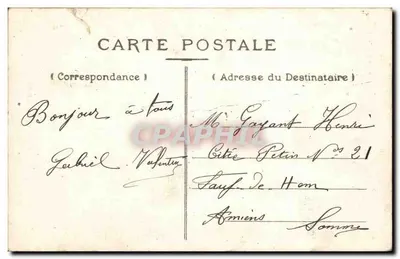 CARTE POSTALE
( Correspondance )
( Adresse du Destinataire )
Bonjour à tous
Gabriel
Mr Gayant Henri
Cité Petin Nos 21
Fauf-de-Ham
Amiens Somme
CPAPHIL